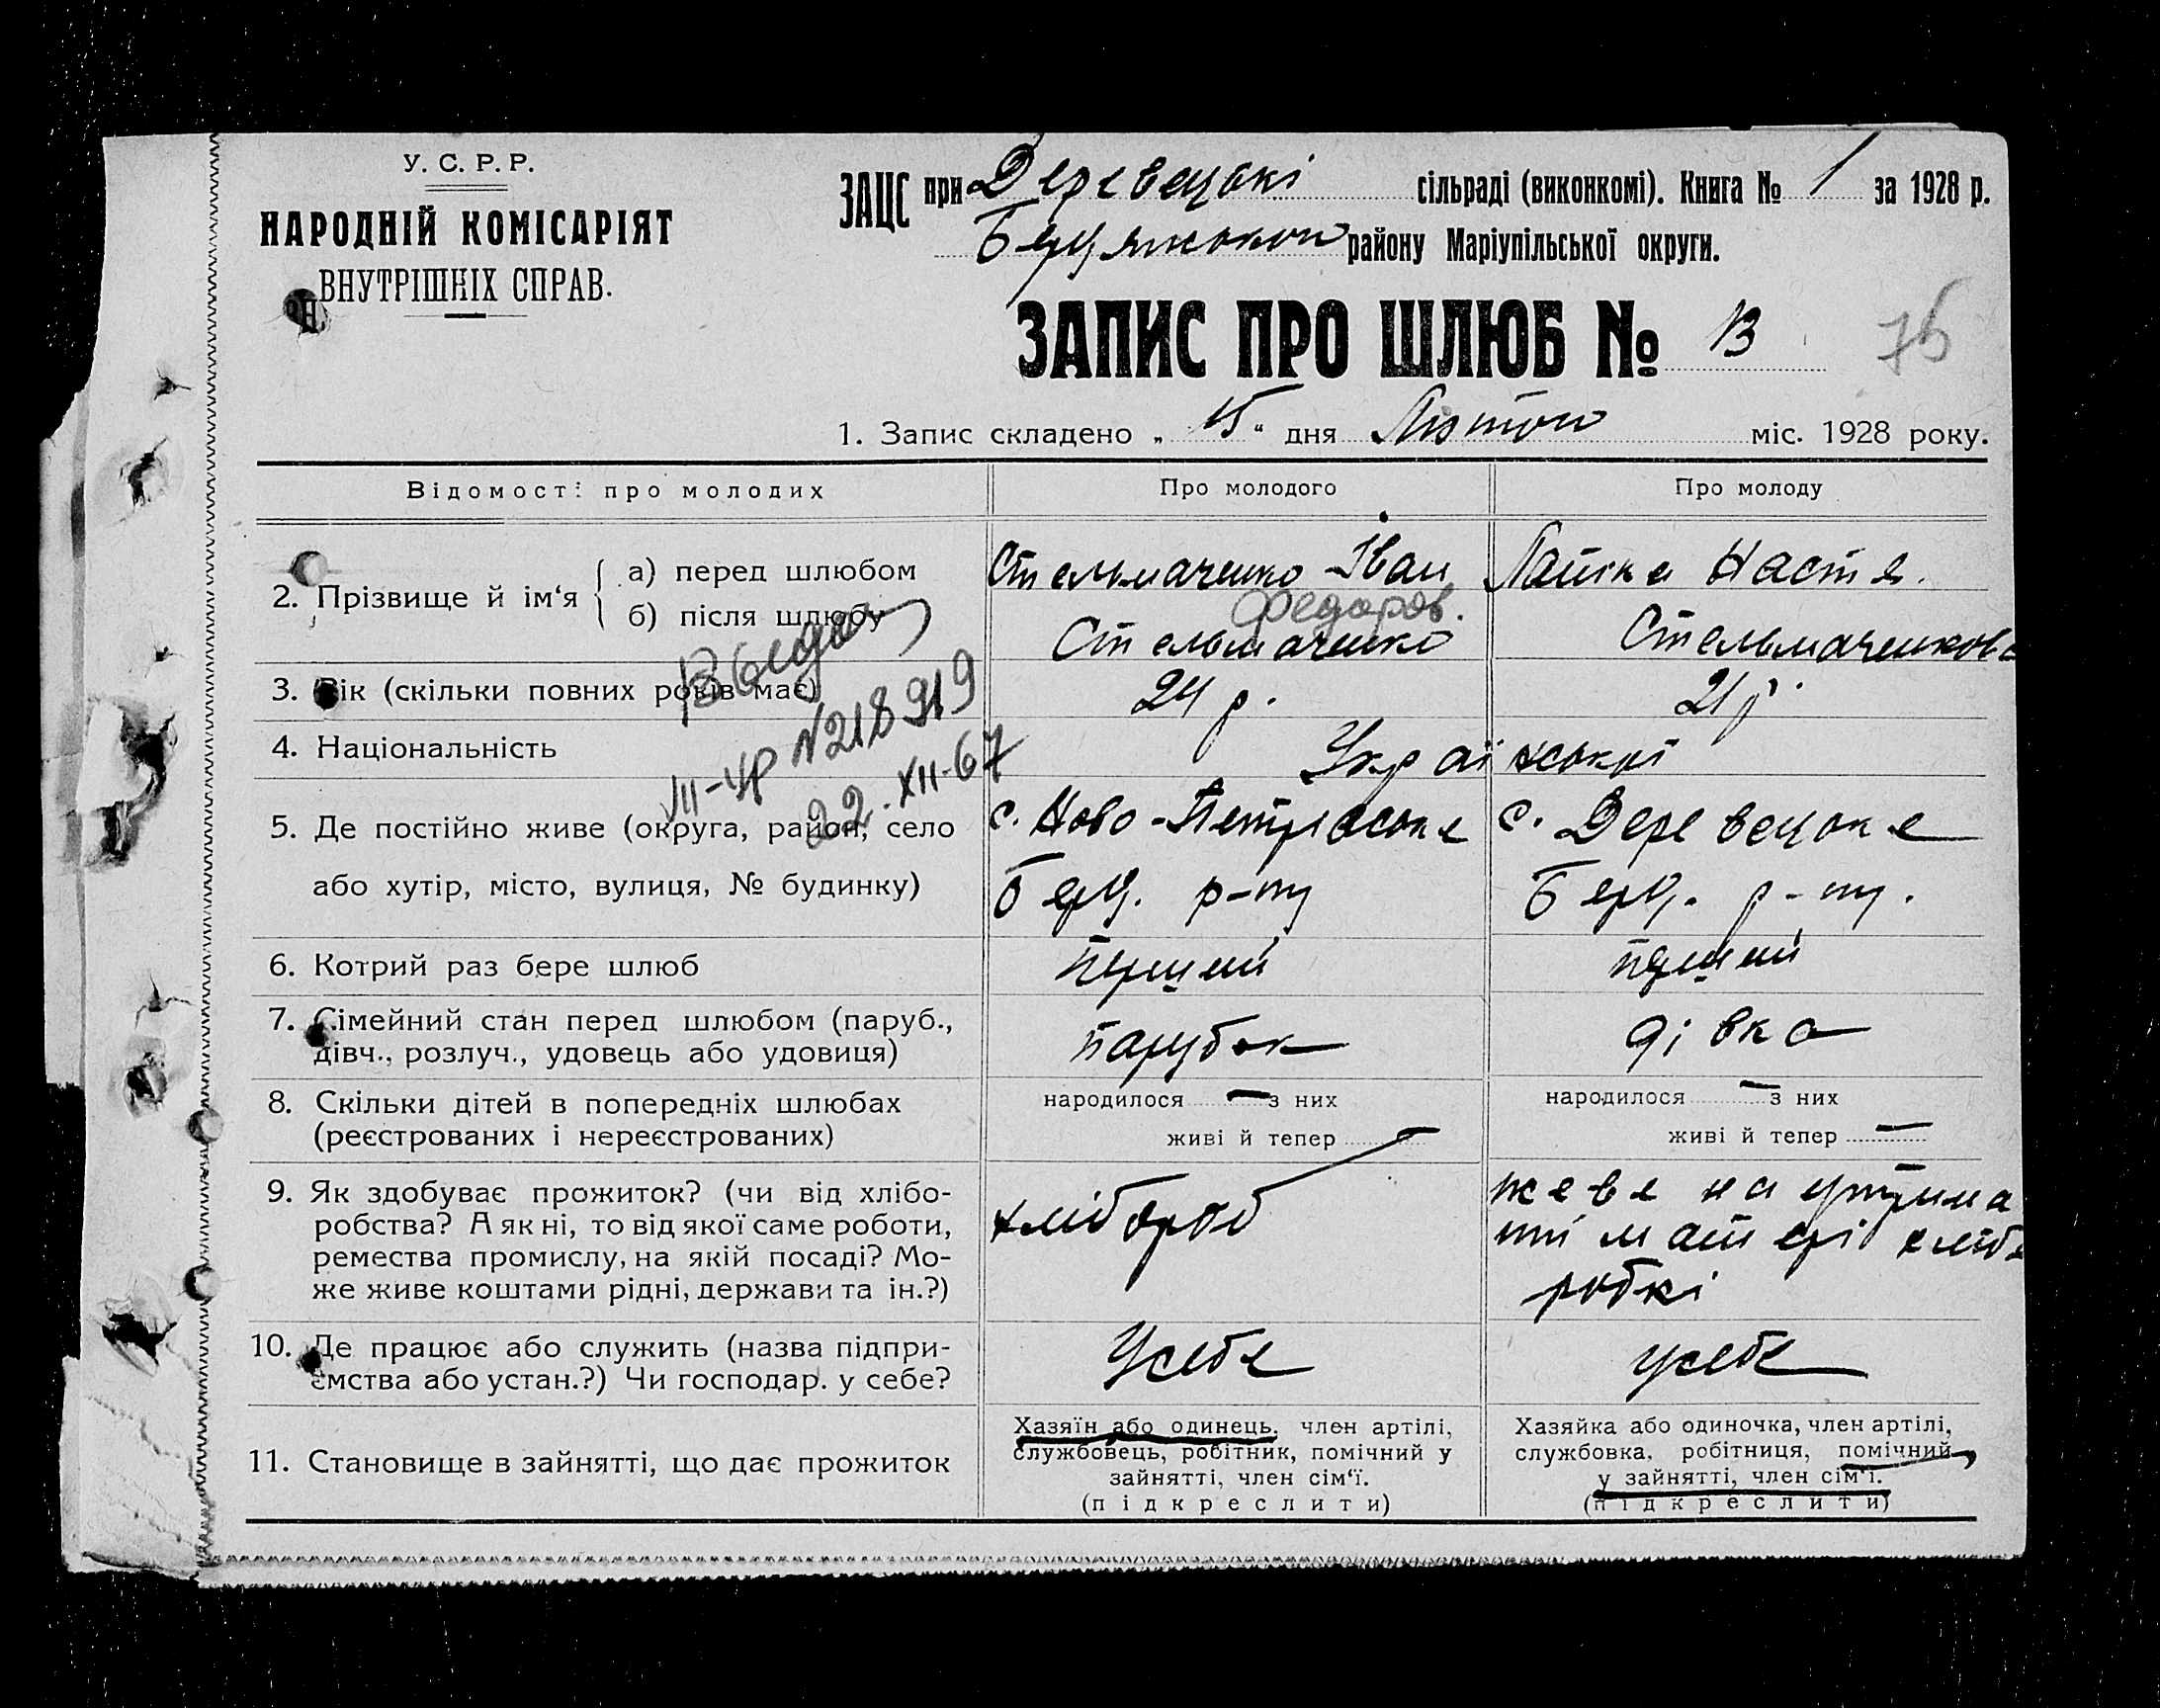 У. С. Р. Р.
НАРОДНІЙ КОМІСАРІЯТ
ВНУТРІШНІХ СПРАВ.
ЗАЦС при Деревецькі сільраді (виконкомі). Книга № 1 за 1928 р.
району Маріупільської округи.
ЗАПИС ПРО ШЛЮБ № 13
76
1. Запис складено „ 15 “ дня міс. 1928 року.
Відомості про молодих
Про молодого
Про молоду
2. Прізвище й ім‘я
а) перед шлюбом
Стельмаченко Іван
Настя.
Федоров.
б) після шлюбу
Стельмаченко
Стельмаченкова
3. Вік (скільки повних років має)
24 р.
21 р.
4. Національність
Української
VII-УР N218919
22.XII-67
5. Де постійно живе (округа, район, село
або хутір, місто, вулиця, № будинку)
с. Ново-Петрівське
Берд. р-ну
с. Деревецьке
Берд. р-ну.
6. Котрий раз бере шлюб
перший
перший
7. Сімейний стан перед шлюбом (паруб.,
дівч., розлуч., удовець або удовиця)
парубок
дівка
8. Скільки дітей в попередніх шлюбах
(реєстрованих і нереєстрованих)
народилося — з них
живі й тепер —
народилося — з них
живі й тепер —
9. Як здобуває прожиток? (чи від хлібо-
робства? А як ні, то від якої саме роботи,
ремества промислу, на якій посаді? Мо-
же живе коштами рідні, держави та ін.?)
хлібороб
живе на утрима
ні матері хлібо
робкі
10. Де працює або служить (назва підпри-
ємства або устан.?) Чи господар. у себе?
Усебе
усебе
11. Становище в зайнятті, що дає прожиток
Хазяїн або одинець, член артілі,
службовець, робітник, помічний у
зайнятті, член сім‘ї.
(підкреслити)
Хазяйка або одиночка, член артілі,
службовка, робітниця, помічний
у зайнятті, член сім‘ї.
(підкреслити)